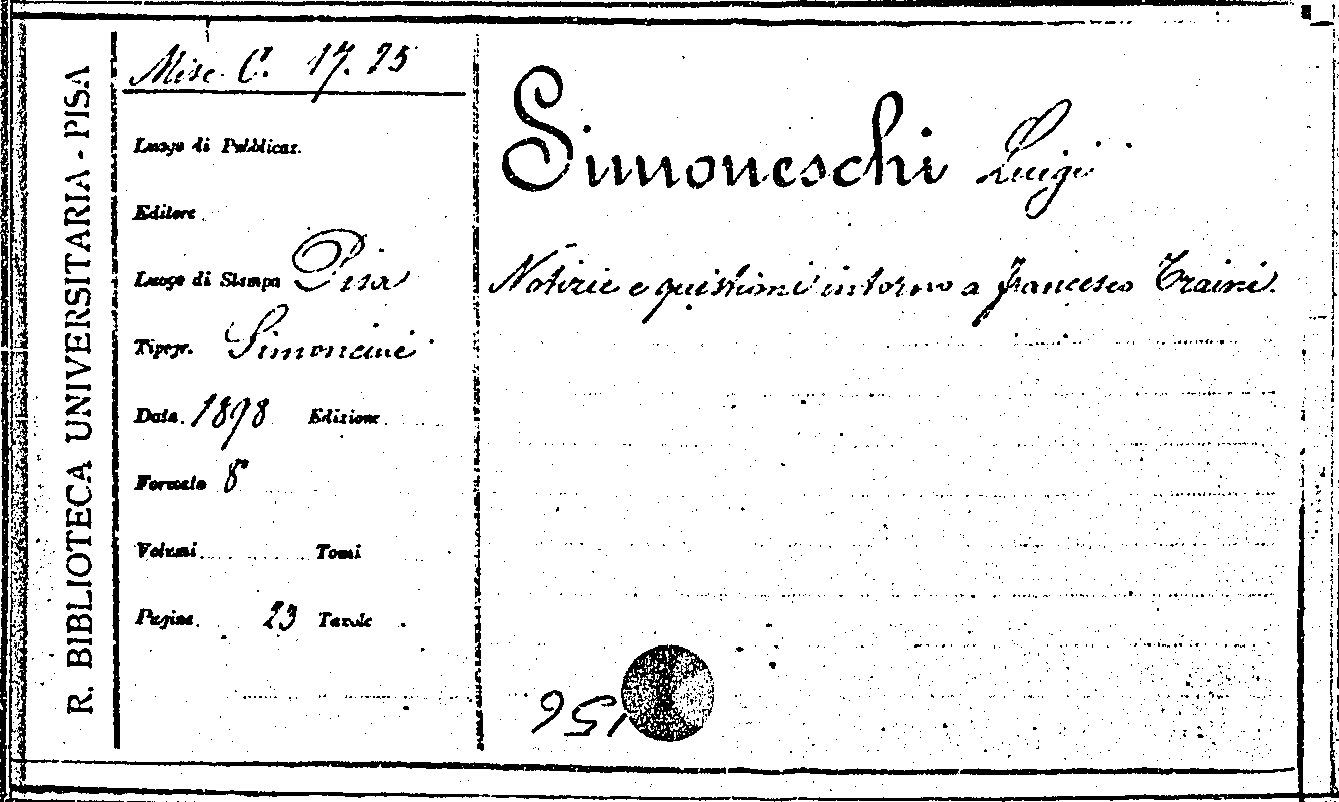 R. BIBLIOTECA UNIVERSITARIA - PISA
Misc. C. 17. 25
Luogo di Pubblicaz.
Editore
Luogo di Stampa Pisa
Tipogr. Simoncini
Data 1898 Edizione
Formato 8°
Volumi Tomi
Pagine 23 Tavole
Simoneschi Luigi
Notizie e quistioni intorno a Francesco Traini.